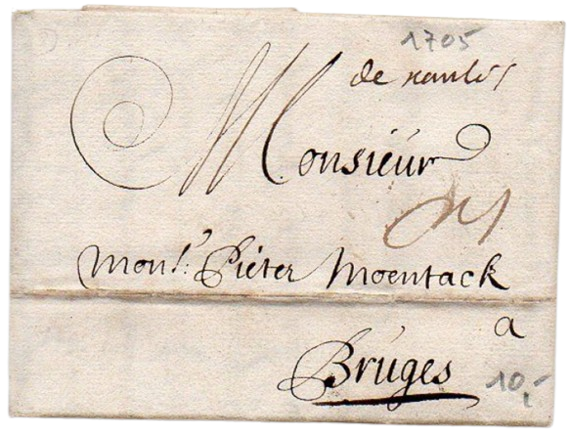 1705
de nantes
Monsieur
Mons.r Pieter Moentack
a
Bruges
10,-